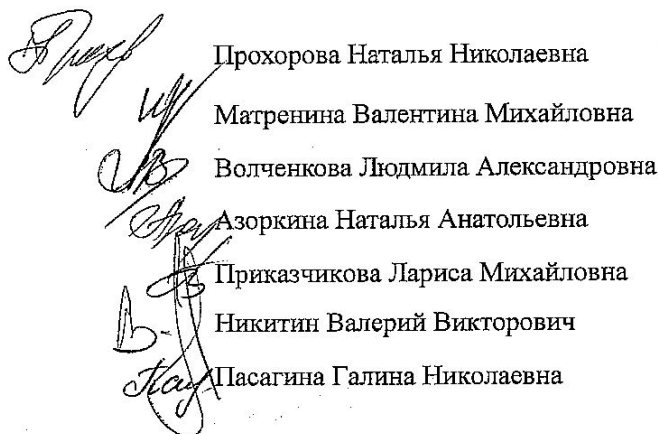 Прохорова Наталья Николаевна
Матренина Валентина Михайловна
Волченкова Людмила Александровна
Азоркина Наталья Анатольевна
Приказчикова Лариса Михайловна
Никитин Валерий Викторович
Пасагина Галина Николаевна